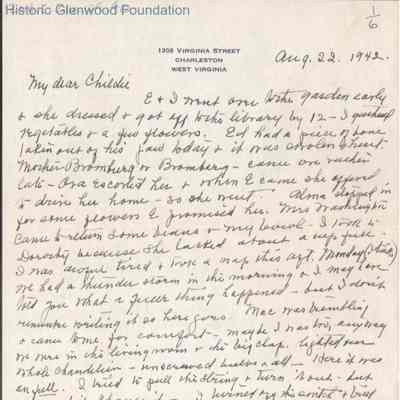 Historic Glenwood Foundation
1/6
1308 VIRGINIA STREET
CHARLESTON
WEST VIRGINIA
Aug. 22. 1942.
My dear Childie
E & I went over to the garden early
& she dressed & got off to the library by 12 - I gathered
vegetables & a few flowers. Ed had a piece of bone
taken out of his jaw today & it was swollen & hurt.
Mother Bromburg or Bromberg - came over rather
late - Ora Escorted her & when E came she offered
to drive her home - so she went. Alma stopped in
for some flowers E promised her. Mrs Washington
came to return some beans & my bowl - I took to
Dorothy because she lacked about a cup full.
I was awful tired & took a nap this aft. Monday
we had a thunder storm in the morning & I may have
told you what a queer thing happened - but I don't
remember writing it so here goes. Mac was trembling
& came to me for comfort - maybe I was too, anyway
we were in the living room & the big clap. lighted our
whole chandelier - unscrewed bulbs & all - Here it was
I tried to pull the string & turn 'em out - but